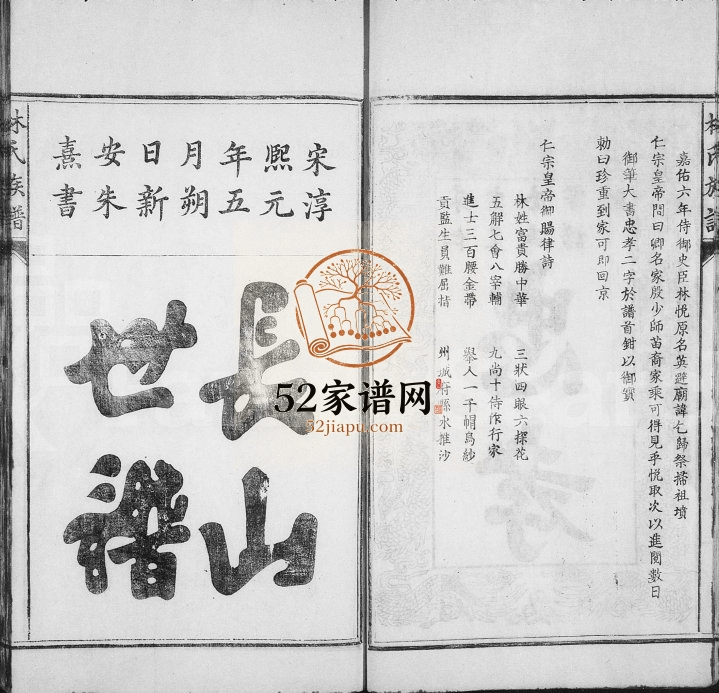 林氏族譜
嘉佑六年侍御史臣林悅原名英避廟諱乞歸祭掃祖墳
仁宗皇帝問曰卿名家殷少師苗裔家乘可得見乎悅取次以進閱數日
御筆大書忠孝二字於譜首鉗以御寶
勅曰珍重到家可即回京
仁宗皇帝御賜律詩
林姓富貴勝中華 三狀四眼六探花
五解七會八宰輔 九尚十侍作行家
進士三百腰金帶 舉人一千帽烏紗
貢監生員難屈指 州城府縣水推沙
宋淳
熙元
年五
月朔
日新
安朱
熹書
長山
世譜
林氏族譜
52家谱网
52jiapu.com